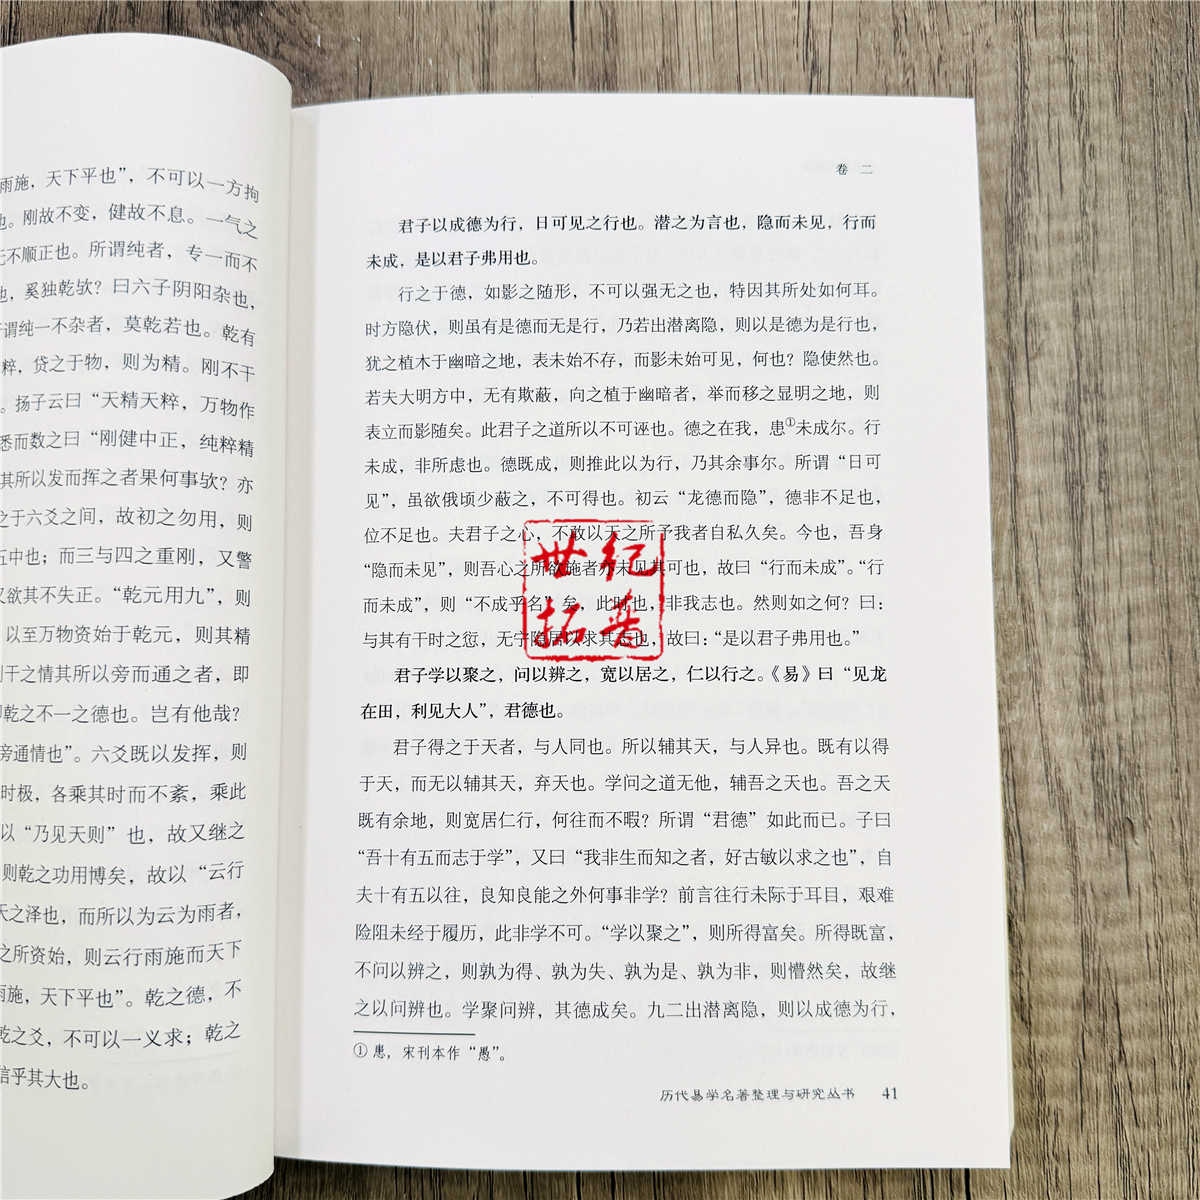 雨施，天下平也”，不可以一方拘
也。刚故不变，健故不息。一气之
无不顺正也。所谓纯者，专一而不
也，奚独乾欤？曰六子阴阳杂也，
所谓纯一不杂者，莫乾若也。乾有
粹，贷之于物，则为精。刚不干
。扬子云曰“天精天粹，万物作
悉而数之曰“刚健中正，纯粹精
其所以发而挥之者果何事欤？亦
之于六爻之间，故初之勿用，则
五中也；而三与四之重刚，又警
又欲其不失正。“乾元用九”，则
以至万物资始于乾元，则其精
干之情其所以旁而通之者，即
即乾之不一之德也。岂有他哉？
旁通情也”。六爻既以发挥，则
时极，各乘其时而不紊，乘此
以“乃见天则”也，故又继之
则乾之功用博矣，故以“云行
天之泽也，而所以为云为雨者，
之所资始，则云行雨施而天下
雨施，天下平也”。乾之德，不
乾之爻，不可以一义求；乾之
信乎其大也。
卷 二
君子以成德为行，日可见之行也。潜之为言也，隐而未见，行而
未成，是以君子弗用也。
行之于德，如影之随形，不可以强无之也，特因其所处如何耳。
时方隐伏，则虽有是德而无是行，乃若出潜离隐，则以是德为是行也，
犹之植木于幽暗之地，表未始不存，而影未始可见，何也？隐使然也。
若夫大明方中，无有欺蔽，向之植于幽暗者，举而移之显明之地，则
表立而影随矣。此君子之道所以不可诬也。德之在我，患①未成尔。行
未成，非所虑也。德既成，则推此以为行，乃其余事尔。所谓“日可
见”，虽欲俄顷少蔽之，不可得也。初云“龙德而隐”，德非不足也，
位不足也。夫君子之心，不敢以天之所予我者自私久矣。今也，吾身
“隐而未见”，则吾心之所欲施者亦未见其可也，故曰“行而未成”。“行
而未成”，则“不成乎名”矣，此时也，非我志也。然则如之何？曰：
与其有干时之愆，无宁隐居以求其志也，故曰：“是以君子弗用也。”
君子学以聚之，问以辨之，宽以居之，仁以行之。《易》曰“见龙
在田，利见大人”，君德也。
君子得之于天者，与人同也。所以辅其天，与人异也。既有以得
于天，而无以辅其天，弃天也。学问之道无他，辅吾之天也。吾之天
既有余地，则宽居仁行，何往而不暇？所谓“君德”如此而已。子曰
“吾十有五而志于学”，又曰“我非生而知之者，好古敏以求之也”，自
夫十有五以往，良知良能之外何事非学？前言往行未际于耳目，艰难
险阻未经于履历，此非学不可。“学以聚之”，则所得富矣。所得既富，
不问以辨之，则孰为得、孰为失、孰为是、孰为非，则懵然矣，故继
之以问辨也。学聚问辨，其德成矣。九二出潜离隐，则以成德为行，
① 患，宋刊本作“愚”。
历代易学名著整理与研究丛书 41
世纪
拓普